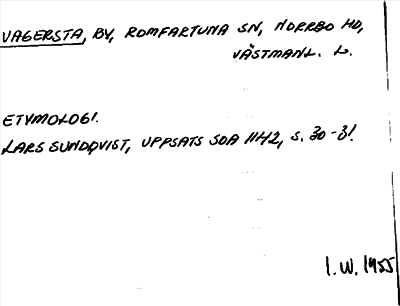 VAGERSTA, BY, ROMFARTUNA SN, NORRBO HD,
VÄSTMANL. L.
ETYMOLOGI.
LARS SUNDQVIST, UPPSATS SOA 1142, S. 30-31.
I.W. 1955